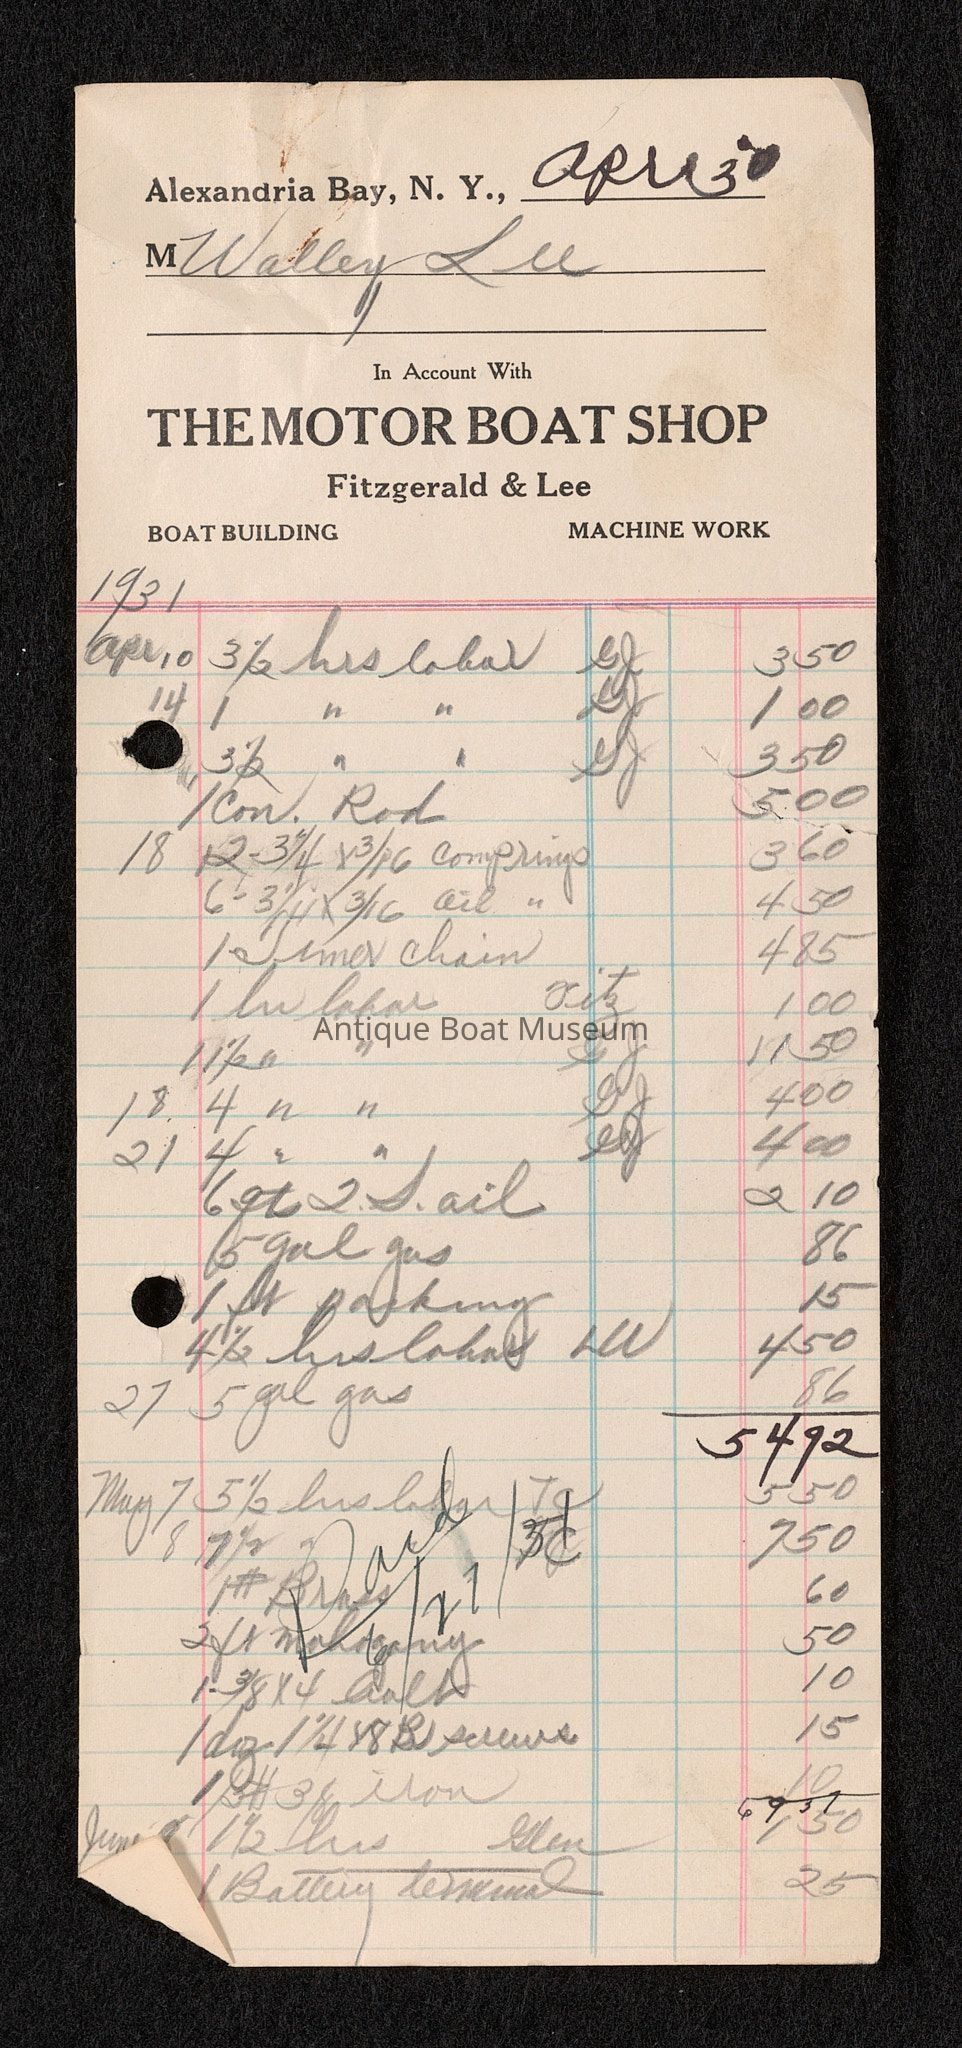 Alexandria Bay, N. Y., Apr 30
M Walley Lee
In Account With
THE MOTOR BOAT SHOP
Fitzgerald & Lee
BOAT BUILDING MACHINE WORK
1931
Apr, 10 3 1/2 hrs labor GJ 3 50
14 1 " " GJ 1 00
3 1/2 " " GJ 3 50
1 Con. Rod 5 00
18 12 - 3 1/4 x 3/16 comp rings 3 60
6 - 3 1/4 x 3/16 oil " 4 50
1 chain 4 85
1 hr labor Fitz 1 00
Antique Boat Museum
11 1/2 " " GJ 11 50
18. 4 " " GJ 4 00
21 4 " " GJ 4 00
6 qt oil 2 10
5 gal gas 86
1 ft packing 15
4 1/2 hrs labor LW 4 50
27 5 gal gas 86
54 92
May 7 5 1/2 hrs labor TC 5 50
8 7 1/2 " TC 7 50
1 # Brass 60
2 ft mahogany 50
Paid 6/27/31
1 - 3/8 x 4 bolt 10
1 doz 1 1/4 x 8 Br screws 15
iron 10
69 37
June 1 1/2 hrs Glen 1 50
1 Battery terminal 25